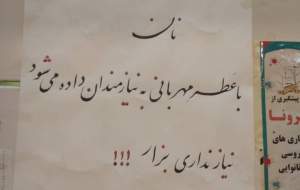 نان
با عطر مهربانی به نیازمندان داده می شود
نیاز نداری بزار !!!
پیشگیری از
رونا
اری های
روسی
نانوایی